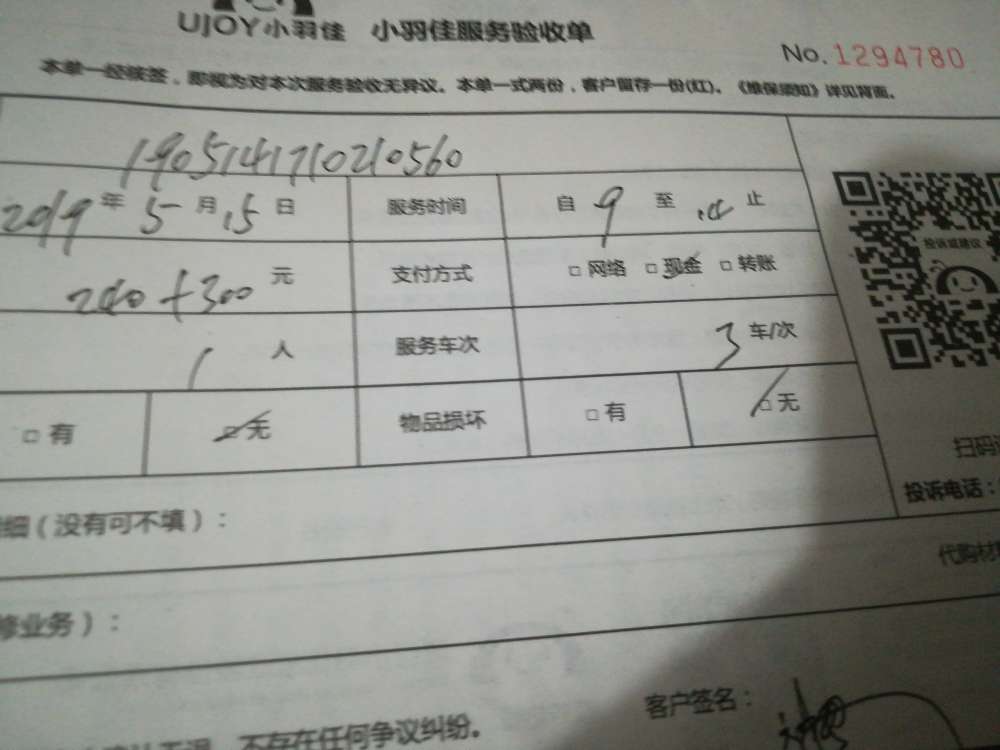 UJOY小羽佳 小羽佳服务验收单
No.1294780
本单一经核签，即视为对本次服务验收无异议。本单一式两份，客户留存一份(红)。《维保须知》详见背面。
1905141710210560
2019年5月15日 服务时间 自9至 止
200+300元 支付方式 □网络 □现金 □转账
投诉或建议
1人 服务车次 3车/次
□有 □无 物品损坏 □有 □无
扫码
投诉电话：
细（没有可不填）：
代购材
修业务）：
客户签名：
不存在任何争议纠纷。